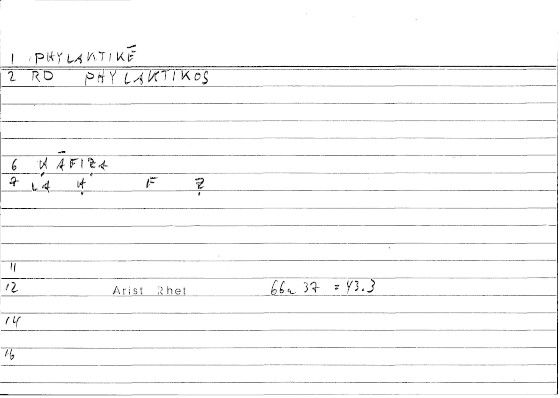 1 PHYLAKTIKĒ
2 RD PHYLAKTIKOS
6 ḤĀFIẒA
7 LA Ḥ F Ẓ
11
12 Arist Rhet 66a 37 = 43.3
14
16